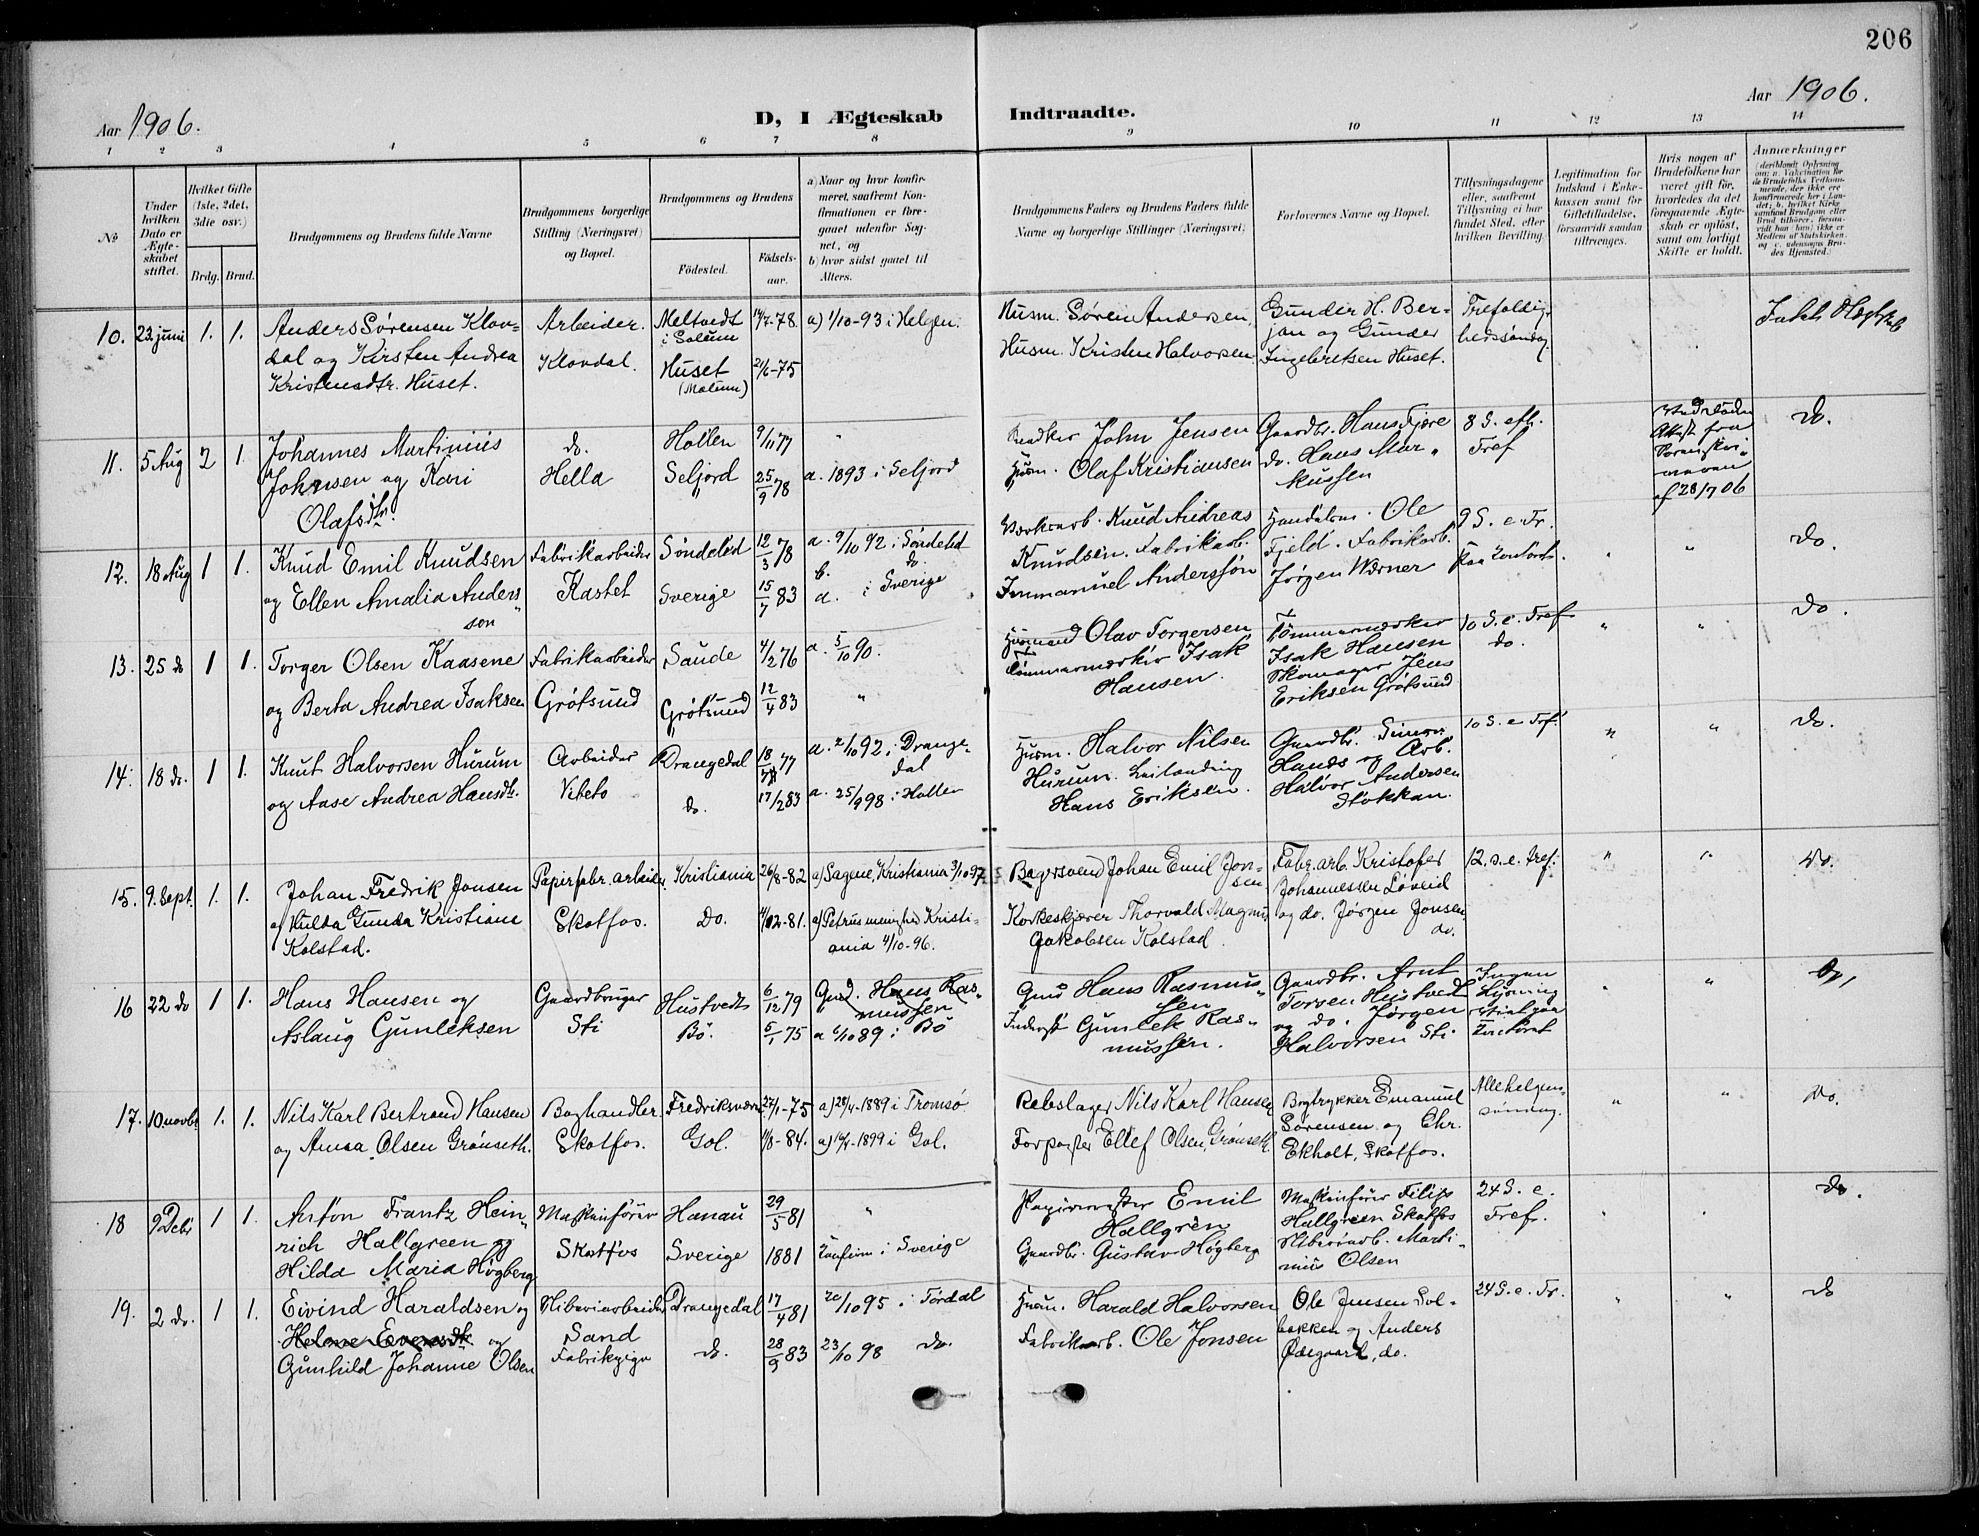 206
Aar 1906.
D, I Ægteskab Indtraadte.
Aar 1906.
1 2 3 4 5 6 7 8 9 10 11 12 13 14
No
Under hvilken Dato er Ægteskabet stiftet.
Hvilket Gifte (1ste, 2det, 3die osv.)
Brdg. Brud.
Brudgommens og Brudens fulde Navne
Brudgommens borgerlige Stilling (Næringsvei) og Bopæl.
Brudgommens og Brudens
Födested.
Födselsaar.
a) Naar og hvor konfirmeret, saafremt Konfirmationen er foregaaet udenfor Sognet, og
b) hvor sidst gaaet til Alters.
Brudgommens Faders og Brudens Faders fulde Navne og borgerlige Stillinger (Næringsvei)
Forlovernes Navne og Bopæl.
Tillysningsdagene eller, saafremt Tillysning ei har fundet Sted, efter hvilken Bevilling.
Legitimation for Indskud i Enkekassen samt for Giftetilladelse, forsaavidt saadan tiltrænges.
Hvis nogen af Brudefolkene har været gift før, hvorledes da det foregaaende Ægteskab er opløst, samt om lovligt Skifte er holdt.
Anmærkninger
10. 23 juni 1. 1. Anders Sørensen Klovdal og Kirsten Andrea Kristensdtr. Huset.
Arbeider. Klovdal.
Meltvedt i Solum 14/7-78. a) 1/10-93 i Helgen.
Huset (Molum) 2/6-75
Husm. Søren Andersen,
Husm. Kristen Halvorsen
Gunder H. Berjan og Gunder Ingebretsen Huset.
Trefoldighedssøndag.
11. 5 Aug 2 1. Johannes Martinius Johnsen og Kari Olafsdtr.
do. Hella
Hollen 9/11 77 "
Seljord 25/9 78 a. 1893 i Seljord
John Jensen
Husm. Olaf Kristiansen
Gaardbr. Hans Fjære
do. Hans Markussen
8 S. eft. Tref
Attest fra
af 28/7 06
do.
12. 18 Aug 1 1. Knud Emil Knudsen og Ellen Amalia Andersson
Fabrikarbeider Kastet
Söndeled 12/3 78 a. 9/10 92 i Söndeled
b. do
Sverige 15/7 83 a. i Sverige
Værksarb. Knud Andreas Knudsen. Fabrikarb. Immanuel Anderssøn
Handelsm. Ole Fjeld. Fabrikarb. Jørgen Wærner
9 S. e. Tr.
" " do.
13. 25 do 1 1. Torger Olsen Kaasene og Berta Andrea Isaksen
Fabrikarbeider Grötsund
Saude 4/2 76 a. 5/10 90.
Grötsund 12/4 83 "
Husmand Olav Torgersen
Tömmermærker Isak Hansen.
Tömmermærker Isak Hansen
Skomager Jens Eriksen Grötsund
10 S. e. Tref do.
" " do.
14. 18 do. 1 1. Knut Halvorsen Hurum og Aase Andrea Hansdtr.
Arbeider Vibeto
Drangedal 18/7 77 a. 2/10 92 i Drangedal
do. 17/2 83 a. 25/9 98 i Hollen
Husm. Halvor Nilsen Hurum. Leilending Hans Eriksen.
Gaardbr. Simon Hands og Arb. Halvor Andersen Stokkan.
10 S. e Tref.
" " do.
15. 9. Sept. 1. 1. Johan Fredrik Jonsen og Hulda Gunda Kristiane Kolstad.
Papirfabr. arbeider Skotfos.
Kristiania 26/8-82 a) Sagene, Kristiania 3/10 97.
Do. 4/12-81. a) Petrus menighed Kristiania 4/10-96.
Bagersvend Johan Emil Jonsen
Korkeskjærer Thorvald Magnus Jakobsen Kolstad.
Fabr. arb. Kristofer Johannessen Løveid og do. Jørgen Jonsen, do.
12. s. e. tref.
" " do.
16 22 do 1 1. Hans Hansen og Aslaug Gunleksen
Gaardbruger Sti
Hustvedt 6/12 79 Grd. Hans Rasmussen
Bö. 5/1 75 a 6/10 89 i Bö
Gmd Hans Rasmussen
Inderst Gunlek Rasmussen.
Gaardbr. Arnt Torsen Hustvedt og do. Jørgen Halvorsen Sti.
Ingen Lysning
" " do,
17. 10 novbr 1. 1. Nils Karl Bertrand Hansen og Anna Olsen Grönseth.
Boghandler. Skotfos.
Fredriksværn 27/1-75 a) 28/4-1889 i Tromsö
Gol. 11/8-84. a) 16/4-1899 i Gol.
Rebslager Nils Karl Hansen
Forpagter Ellef Olsen Grönseth.
Bogtrykker Emanuel Sørensen og Chr. Ekholt, Skotfos.
Allehelgenssøndag.
" " do.
18 9 Debr 1 1. Anton Frantz Heinrich Hallgreen og Hilda Maria Högberg
Maskinfører Skotfos
Hanau 29/5 81 "
Sverige 1881 Konfirm i Sverige
Papirmester Emil Hallgrén
Gaardbr. Gustav Högberg
Maskinfører Filip Hallgreen Skotfos
Sliberiarb. Martinius Olsen
24 S. e. Tref.
do.
19. 2 do. 1 1. Eivind Haraldsen og
og Gunhild Johanne Olsen
Sliberiarbeider Sand
Fabrikpige
Drangedal 17/4 81 20/10 95 i Tördal
do. 28/9 83 23/10 98 do.
Husm. Harald Halvorsen
Fabrikarb. Ole Jonsen
Ole Jensen Solbakken og Anders Ødegaard, do.
24 S. e. Tr.
" " do